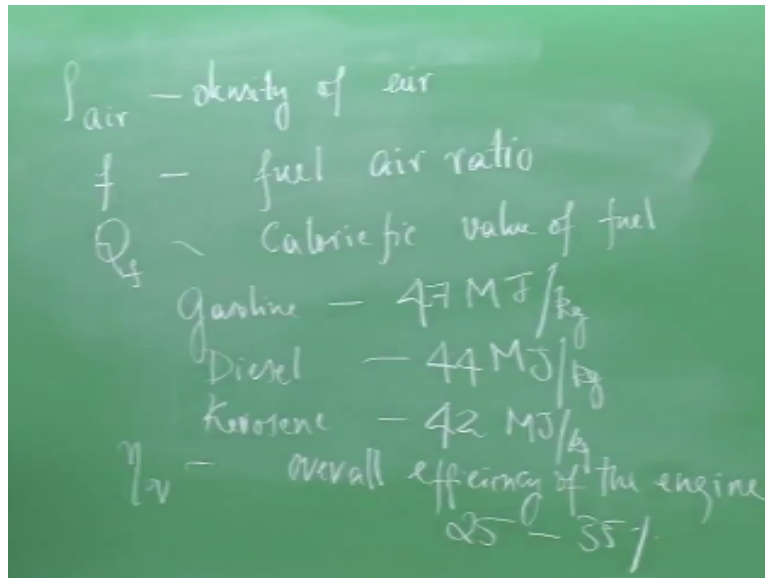 ρair — density of air
f — fuel air ratio
Qf - Caloriefic value of fuel
Gasoline — 47 MJ/kg
Diesel — 44 MJ/kg
Kerosene — 42 MJ/kg
ηov — overall efficiency of the engine
25 — 35%